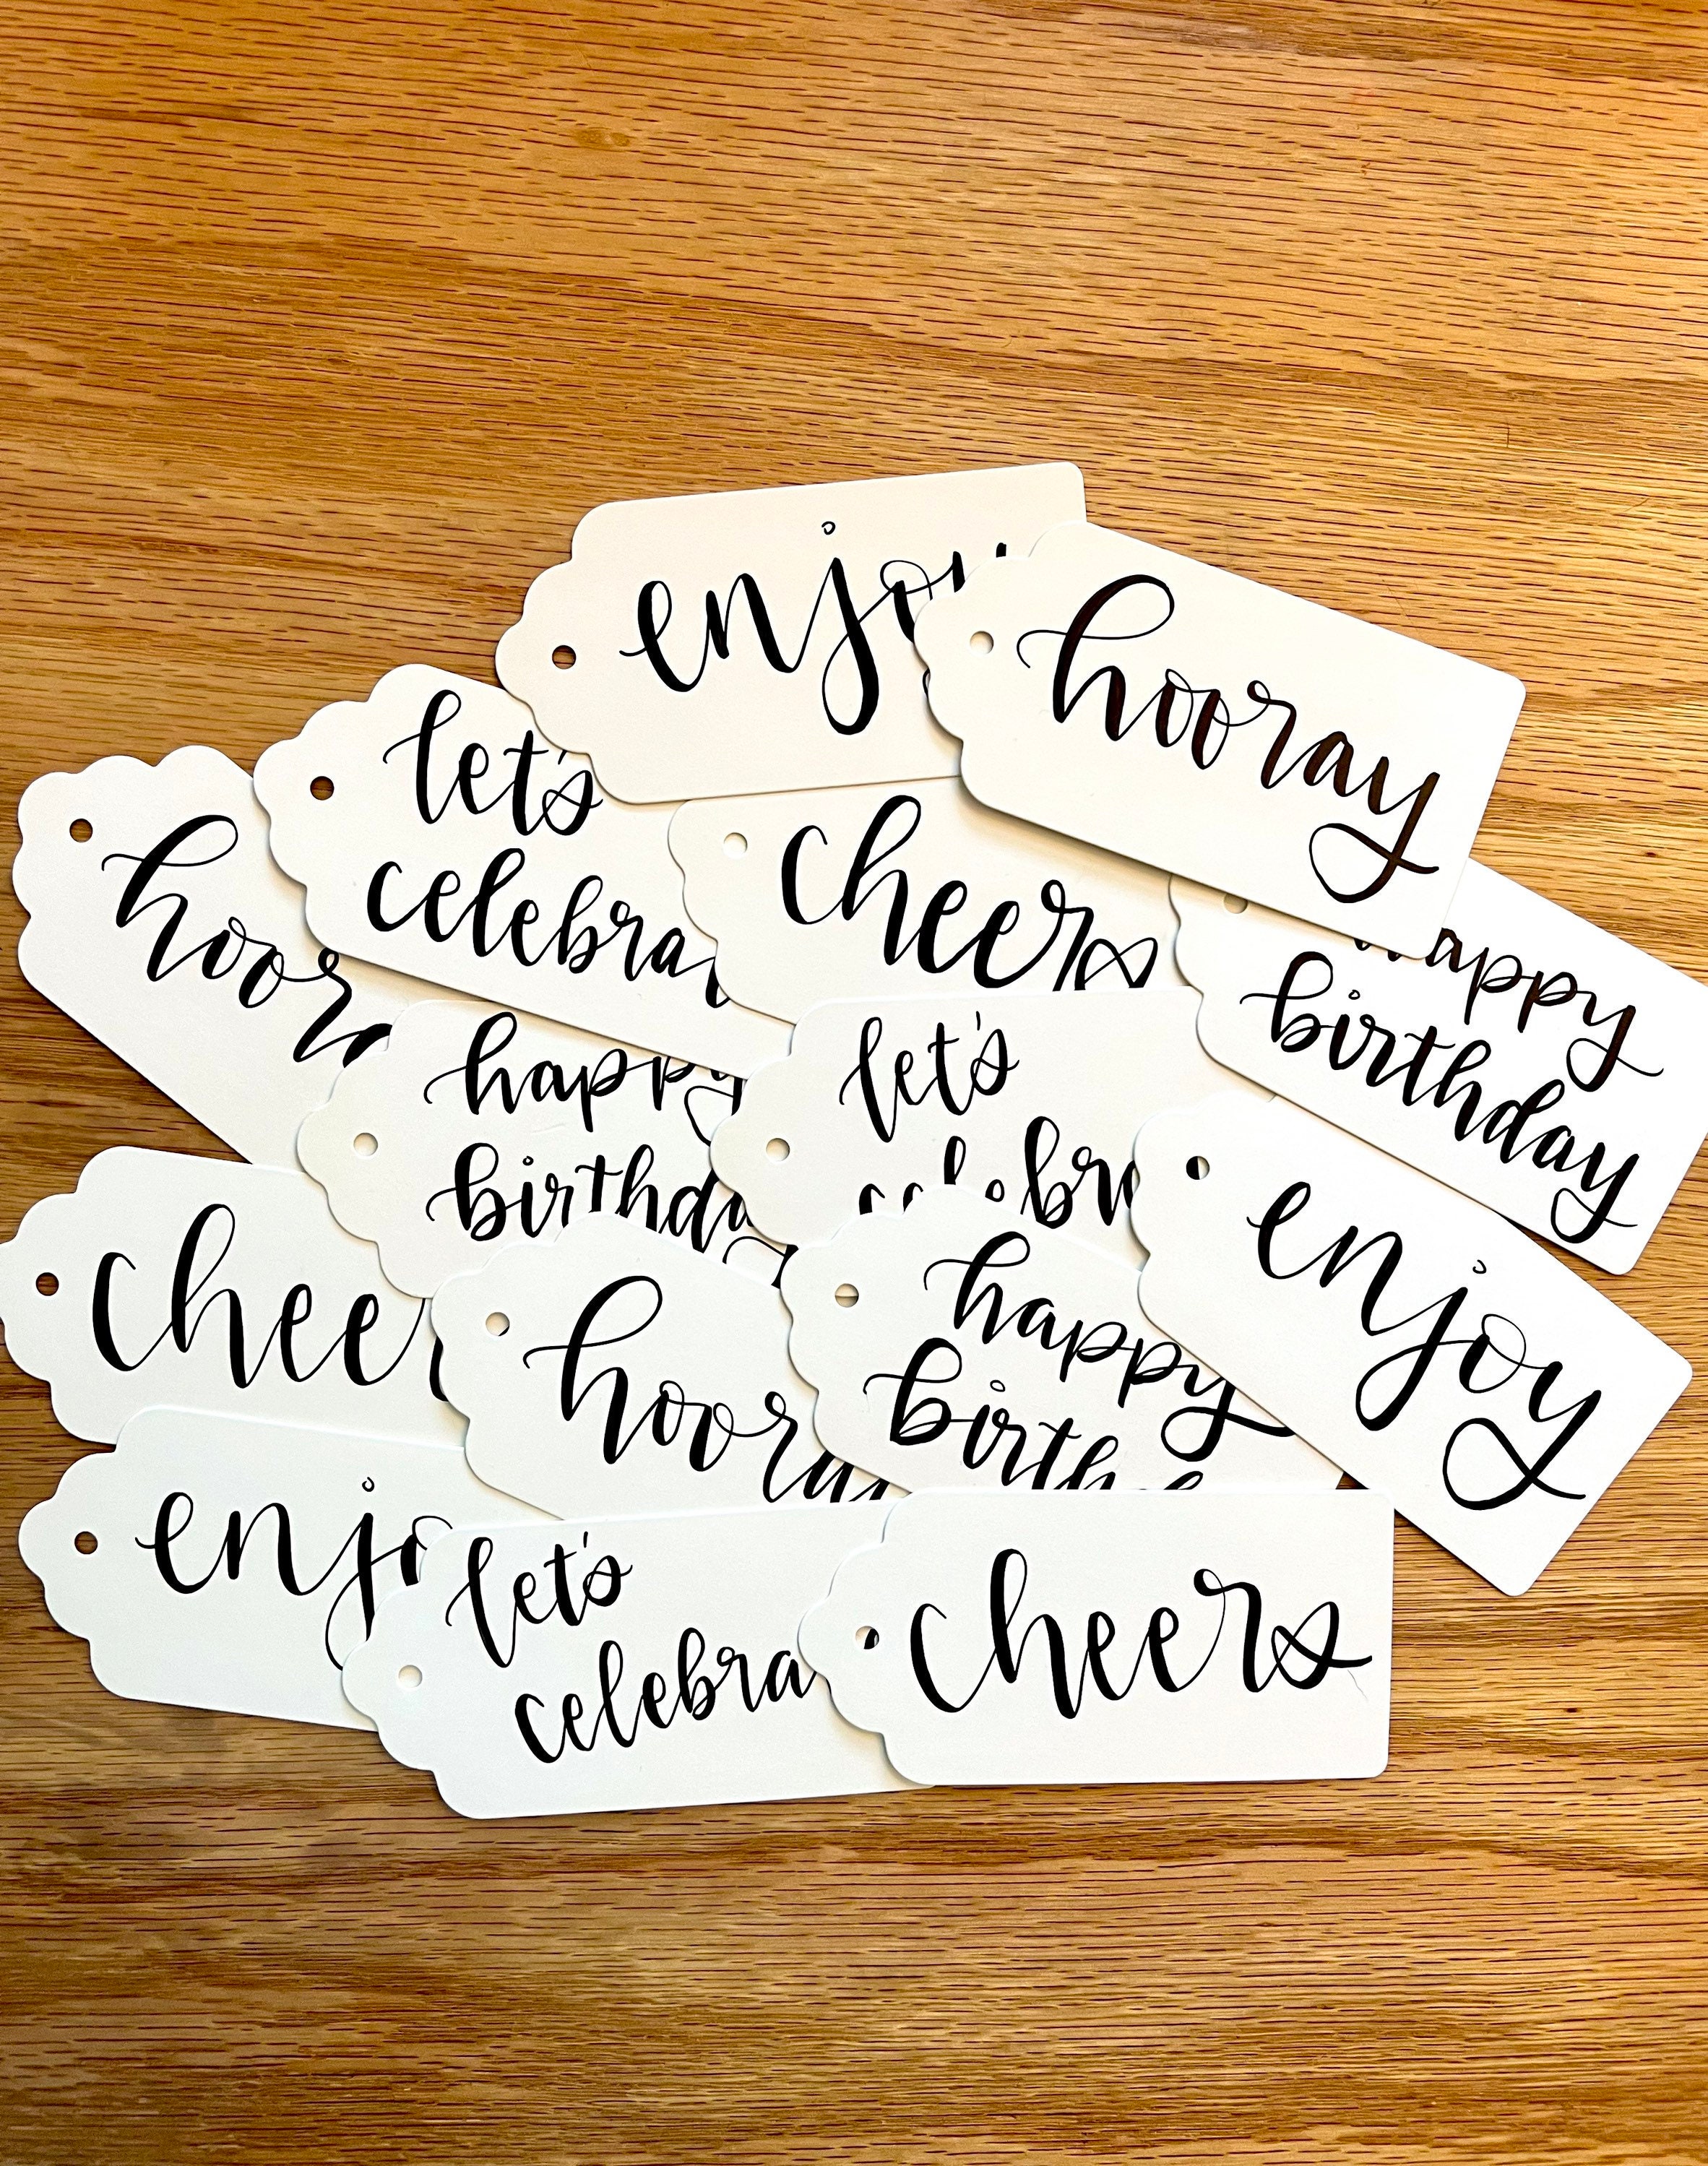 enjoy
hooray
let's
celebra
cheers
hoor
happy
birthday
happy
birthda
let's
celebra
enjoy
chee
hooray
happy
birth
enjo
let's
celebra
cheers